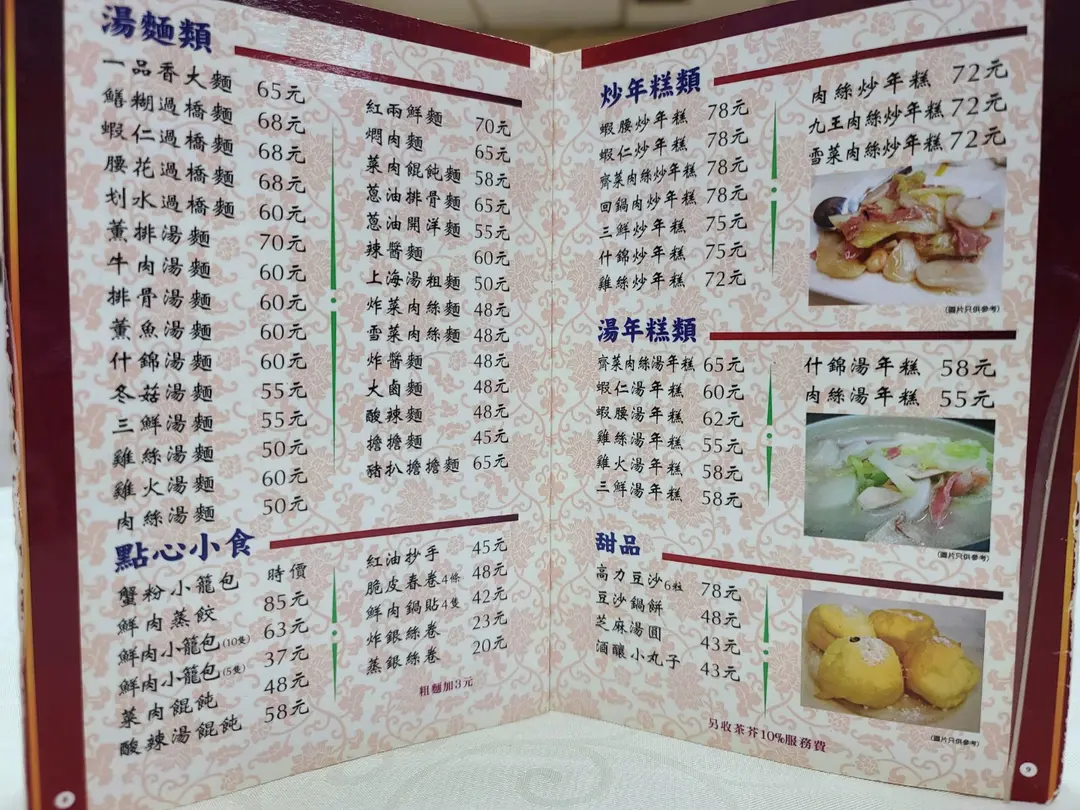 湯麵類
一品香大麵 65元
鱔糊過橋麵 68元
蝦仁過橋麵 68元
腰花過橋麵 68元
划水過橋麵 60元
薰排湯麵 70元
牛肉湯麵 60元
排骨湯麵 60元
薰魚湯麵 60元
什錦湯麵 60元
冬菇湯麵 55元
三鮮湯麵 55元
雞絲湯麵 50元
雞火湯麵 60元
肉絲湯麵 50元
紅兩鮮麵 70元
燜肉麵 65元
菜肉餛飩麵 58元
蔥油排骨麵 65元
蔥油開洋麵 55元
辣醬麵 60元
上海湯粗麵 50元
炸菜肉絲麵 48元
雪菜肉絲麵 48元
炸醬麵 48元
大鹵麵 48元
酸辣麵 48元
擔擔麵 45元
豬扒擔擔麵 65元
點心小食
蟹粉小籠包 時價
鮮肉蒸餃 85元
鮮肉小籠包(10隻) 63元
鮮肉小籠包(5隻) 37元
菜肉餛飩 48元
酸辣湯餛飩 58元
紅油抄手 45元
脆皮春卷4條 48元
鮮肉鍋貼4隻 42元
炸銀絲卷 23元
蒸銀絲卷 20元
粗麵加3元
8
炒年糕類
蝦腰炒年糕 78元
蝦仁炒年糕 78元
薺菜肉絲炒年糕 78元
回鍋肉炒年糕 78元
三鮮炒年糕 75元
什錦炒年糕 75元
雞絲炒年糕 72元
肉絲炒年糕 72元
九王肉絲炒年糕 72元
雪菜肉絲炒年糕 72元
(圖片只供參考)
湯年糕類
薺菜肉絲湯年糕 65元
蝦仁湯年糕 60元
蝦腰湯年糕 62元
雞絲湯年糕 55元
雞火湯年糕 58元
三鮮湯年糕 58元
什錦湯年糕 58元
肉絲湯年糕 55元
(圖片只供參考)
甜品
高力豆沙6粒 78元
豆沙鍋餅 48元
芝麻湯圓 43元
酒釀小丸子 43元
(圖片只供參考)
另收茶芥10%服務費
9